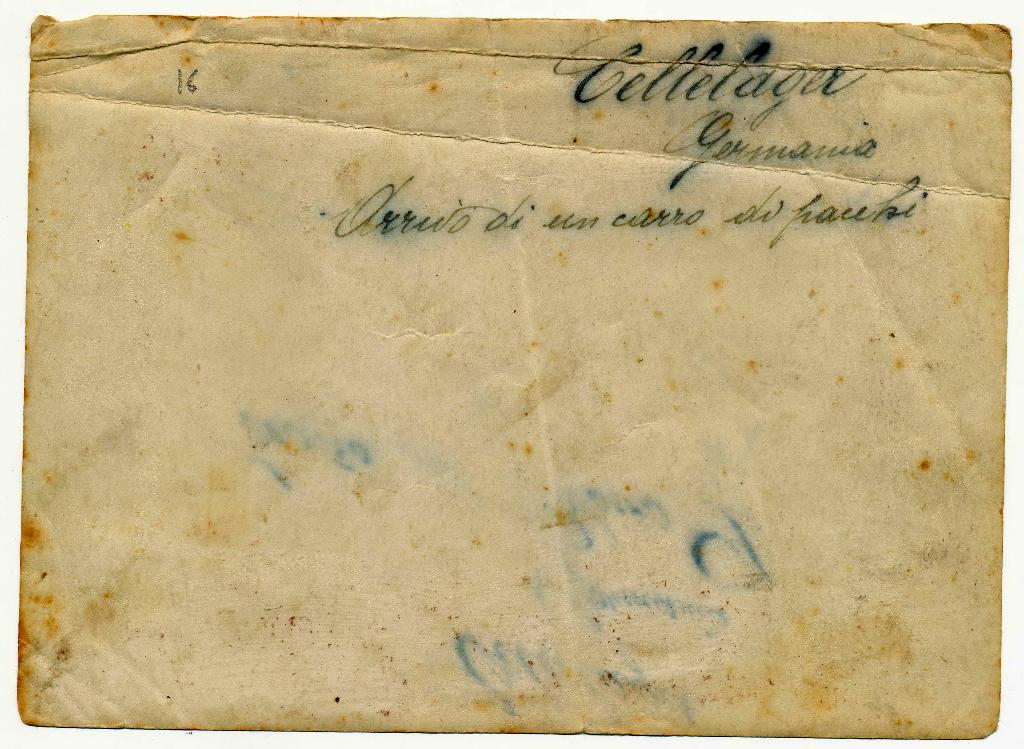 16
Cellelager
Germania
Arrivo di un carro di pacchi